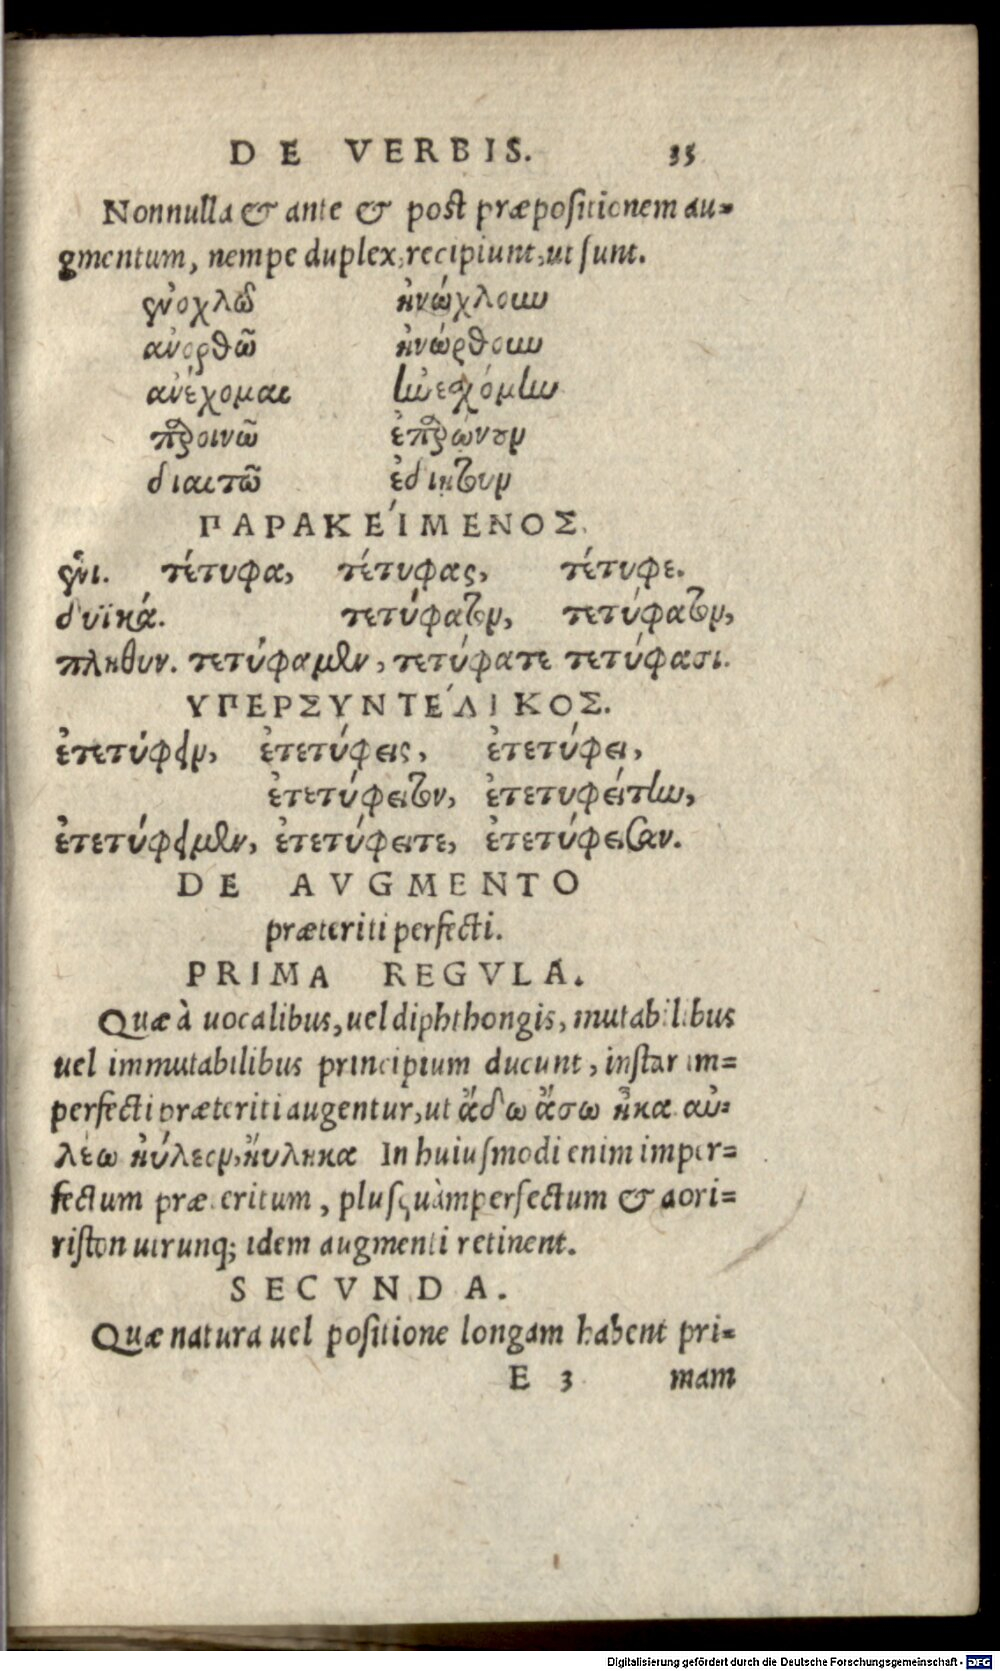 DE VERBIS. 35
Nonnulla & ante & post præpositionem au=
gmentum, nempe duplex, recipiunt, ut sunt.
ἐνοχλῶ ἠνώχλουν
ἀνορθῶ ἠνώρθουν
ἀνέχομαι ἠνεχόμην
παροινῶ ἐπαρώνουν
διαιτῶ ἐδιῄτουν
ΠΑΡΑΚΕΊΜΕΝΟΣ.
ἑνι. τέτυφα, τέτυφας, τέτυφε.
δυϊκά. τετύφατον, τετύφατον,
πληθυν. τετύφαμεν, τετύφατε τετύφασι.
ΥΠΕΡΣΥΝΤΕΛΙΚΟΣ.
ἐτετύφειν, ἐτετύφεις, ἐτετύφει,
ἐτετύφειτον, ἐτετυφείτην,
ἐτετύφειμεν, ἐτετύφειτε, ἐτετύφεισαν.
DE AVGMENTO
præteriti perfecti.
PRIMA REGVLA.
Quæ à uocalibus, uel diphthongis, mutabilibus
uel immutabilibus principium ducunt, instar im=
perfecti præteriti augentur, ut ἄδω ἄσω ἦκα αὐ=
λέω ηὔλεον, ηὔληκα In huiusmodi enim imper=
fectum præteritum, plusquàmperfectum & aori=
riston utrunq; idem augmenti retinent.
SECVNDA.
Quæ natura uel positione longam habent pri=
E 3 mam
Digitalisierung gefördert durch die Deutsche Forschungsgemeinschaft - DFG